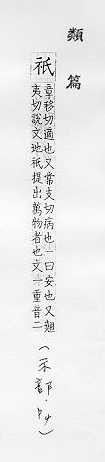 類篇
祇
章移切適也又常支切病也一曰安也又翹
夷切說文地祇提出萬物者也文一重音二
(示部·